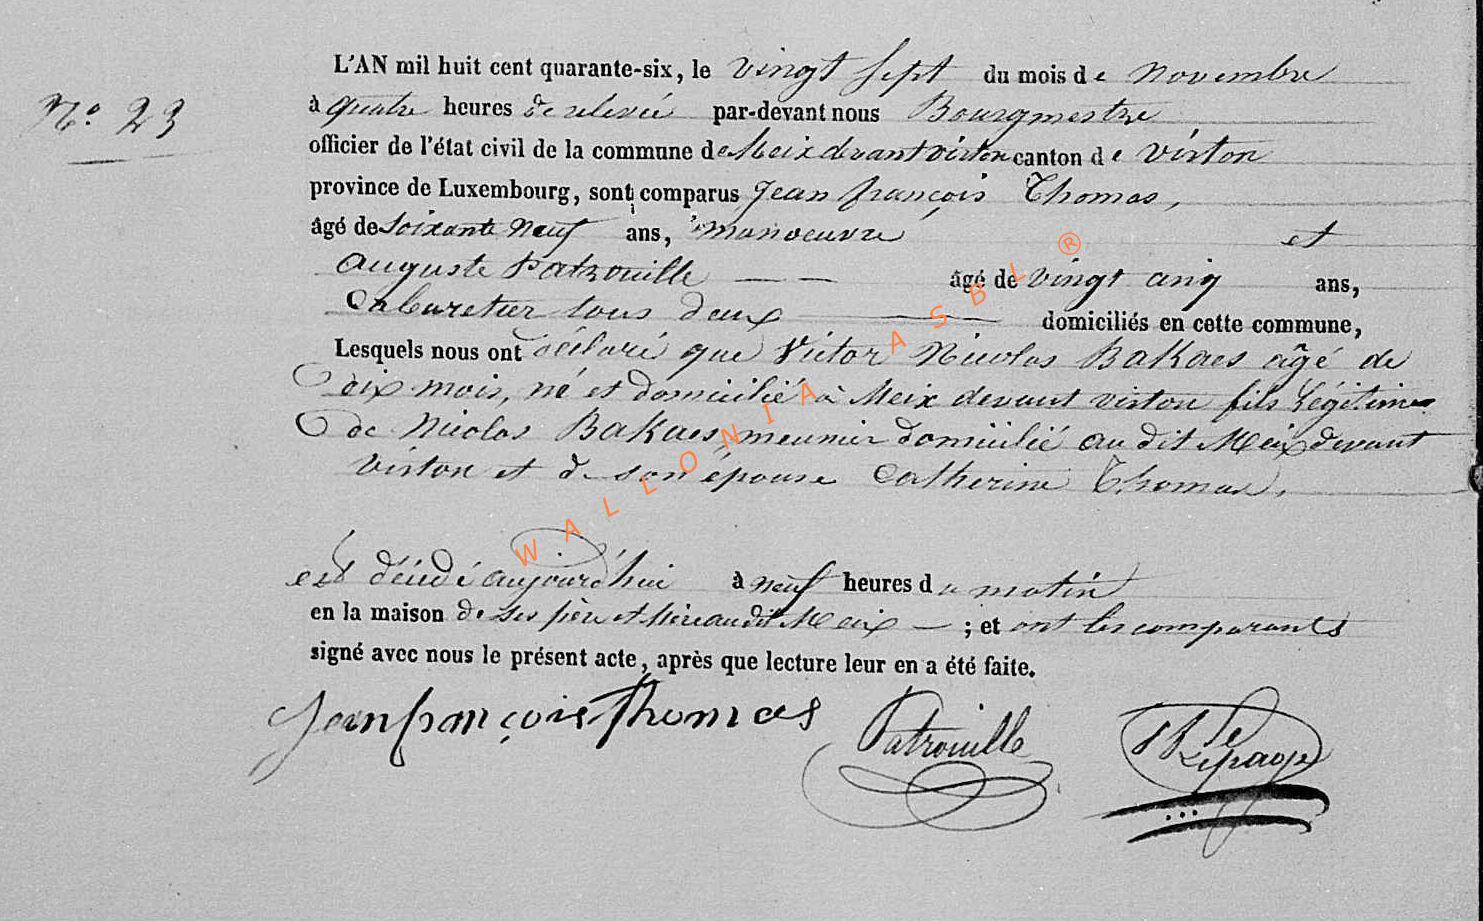 N.° 23
L'AN mil huit cent quarante-six, le vingt sept du mois de novembre
à quatre heures de relevée par-devant nous Bourgmestre
officier de l'état civil de la commune de Meix devant virton canton de virton
province de Luxembourg, sont comparus Jean françois Thomas,
âgé de soixante neuf ans, manoeuvre et
auguste Patrouille âgé de vingt cinq ans,
Cabaretier tous deux domiciliés en cette commune,
Lesquels nous ont déclaré que Victor Nicolas Bakaes âgé de
dix mois, né et domicilié à Meix devant virton fils Légitime
de Nicolas Bakaes meunier domicilié au dit Meix devant
virton et de son épouse Catherine Thomas,
est décédé aujourd'hui à neuf heures du matin
en la maison de ses père et Mère au dit Meix ; et ont les comparants
signé avec nous le présent acte, après que lecture leur en a été faite.
Jean françois Thomas Patrouille Lepage
WALLONIA ASBL ®